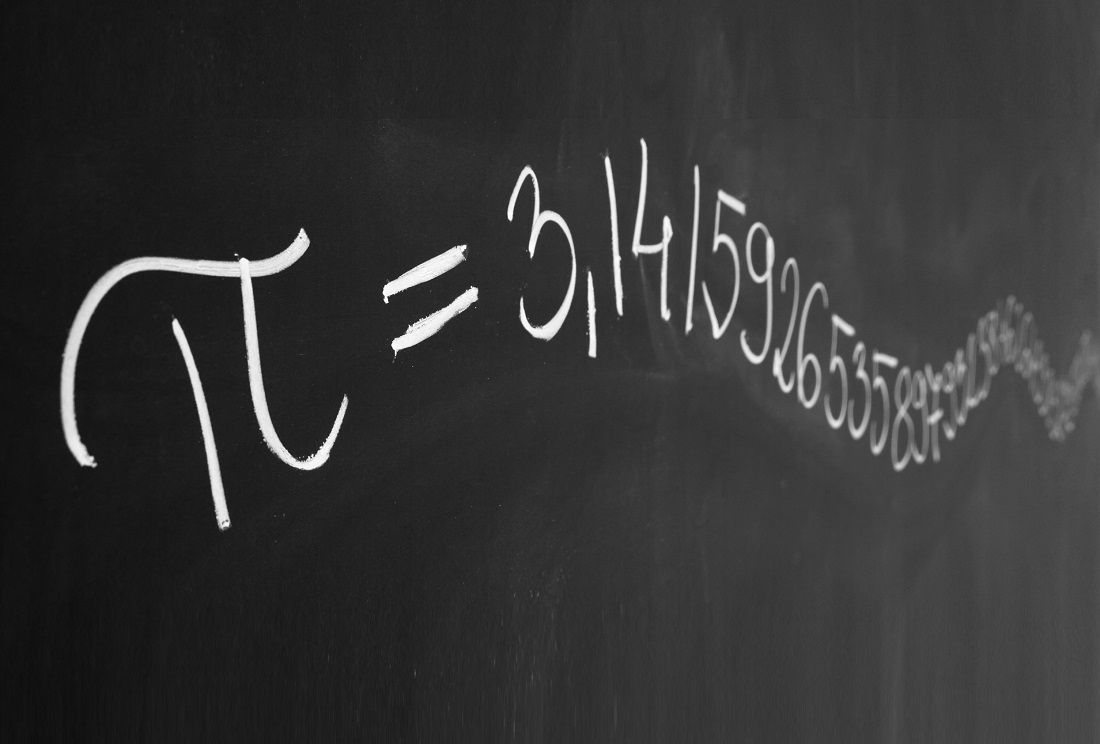 π = 3,14159265358979323